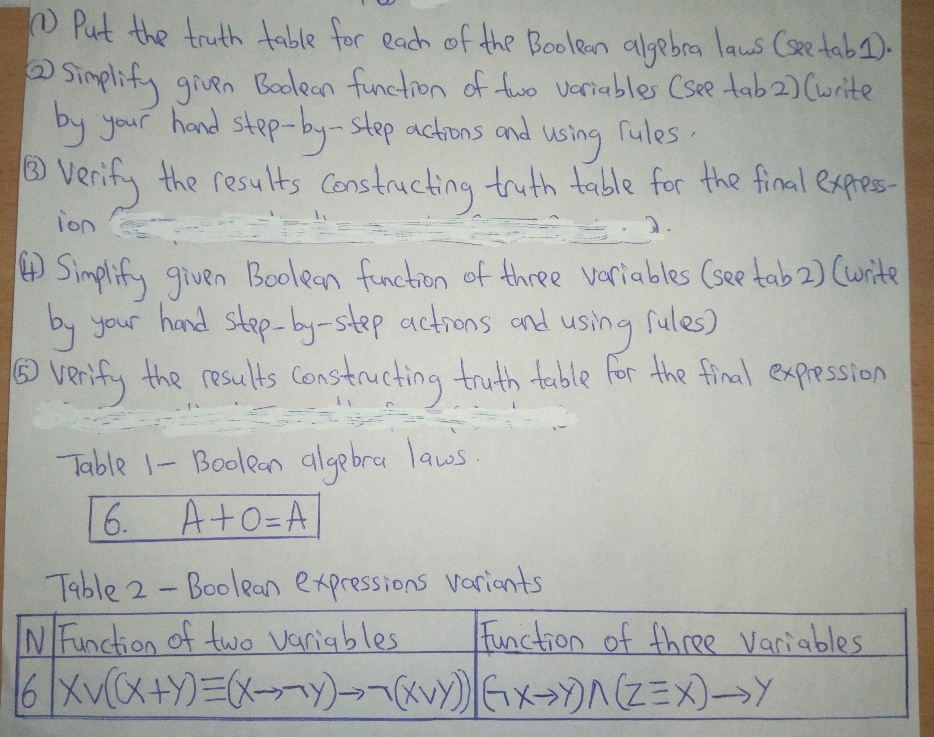 ① Put the truth table for each of the Boolean algebra laws (see tab 1).
② Simplify given Boolean function of two variables (see tab 2) (write
by your hand step-by-step actions and using rules.
③ Verify the results constructing truth table for the final express-
ion
④ Simplify given Boolean function of three variables (see tab 2) (write
by your hand step-by-step actions and using rules)
⑤ Verify the results constructing truth table for the final expression
Table 1- Boolean algebra laws.
6. A+0=A
Table 2 - Boolean expressions variants
N Function of two variables Function of three variables
6 X∨((X+Y)≡(X→¬Y)→¬(X∨Y)) (¬X→Y)∧(Z≡X)→Y